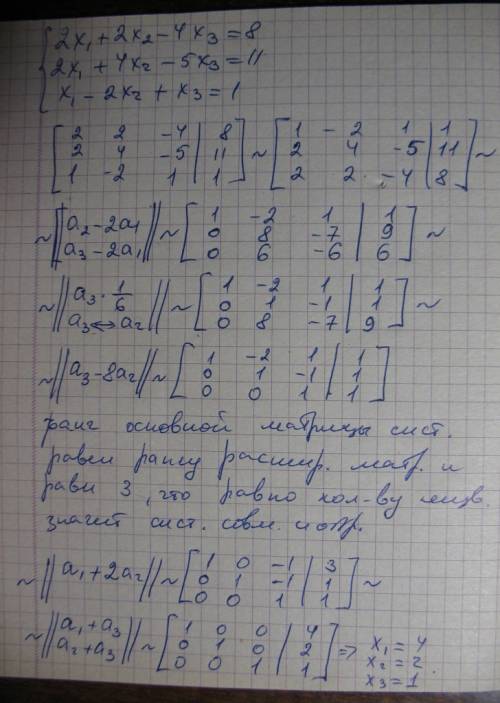 2x₁ + 2x₂ - 4x₃ = 8
2x₁ + 4x₂ - 5x₃ = 11
x₁ - 2x₂ + x₃ = 1
[2 2 -4 | 8] ~ [1 -2 1 | 1] ~
[2 4 -5 | 11] [2 4 -5 | 11]
[1 -2 1 | 1] [2 2 -4 | 8]
~ ||a₂ - 2a₁|| ~ [1 -2 1 | 1] ~
||a₃ - 2a₁|| [0 8 -7 | 9]
[0 6 -6 | 6]
~ ||a₃ · 1/6|| ~ [1 -2 1 | 1] ~
||a₃ ↔ a₂|| [0 1 -1 | 1]
[0 8 -7 | 9]
~ ||a₃ - 8a₂|| ~ [1 -2 1 | 1]
[0 1 -1 | 1]
[0 0 1 | 1]
ранг основной матрицы сист.
равен рангу расшир. матр. и
равн 3, что равно кол-ву неизв.
значит сист. совм. и опр.
~ ||a₁ + 2a₂|| ~ [1 0 -1 | 3] ~
[0 1 -1 | 1]
[0 0 1 | 1]
~ ||a₁ + a₃|| ~ [1 0 0 | 4] => x₁ = 4
||a₂ + a₃|| [0 1 0 | 2] x₂ = 2
[0 0 1 | 1] x₃ = 1